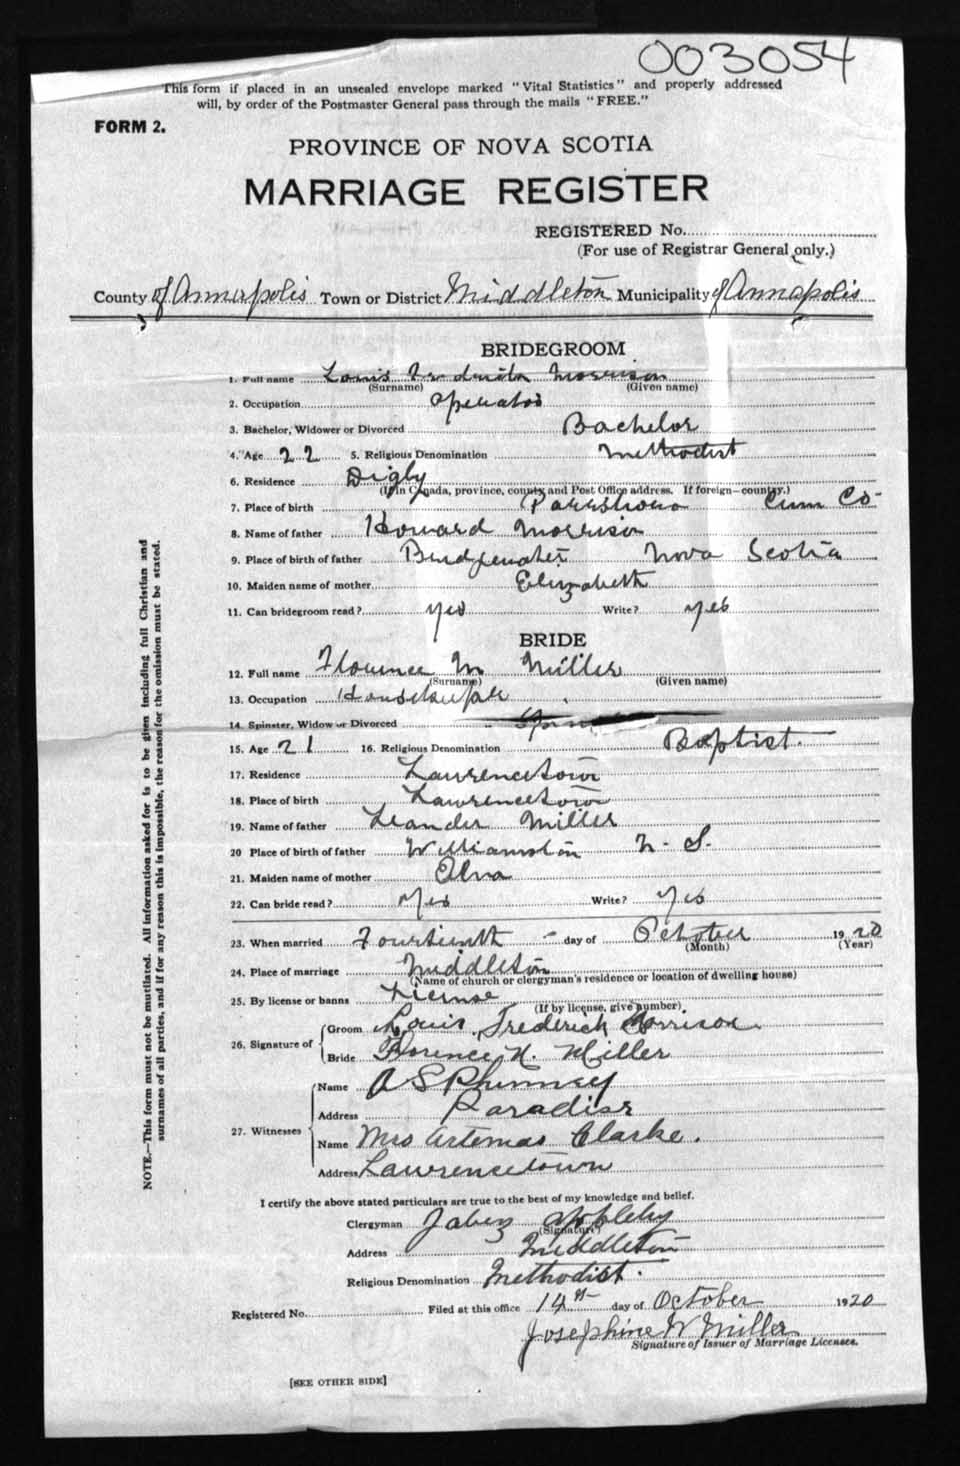 003054
This form if placed in an unsealed envelope marked "Vital Statistics" and properly addressed
will, by order of the Postmaster General pass through the mails "FREE."
FORM 2.
PROVINCE OF NOVA SCOTIA
MARRIAGE REGISTER
REGISTERED No.
(For use of Registrar General only.)
County of Annapolis Town or District Middleton Municipality of Annapolis
BRIDEGROOM
1. Full name Louis Frederick Morrison
(Surname) (Given name)
2. Occupation Operator
3. Bachelor, Widower or Divorced Bachelor
4. Age 22 5. Religious Denomination Methodist
6. Residence Digby
(If in Canada, province, county and Post Office address. If foreign—country.)
7. Place of birth Parrsboro Cum Co-
8. Name of father Howard Morrison
9. Place of birth of father Bridgewater Nova Scotia
10. Maiden name of mother Elizabeth
11. Can bridegroom read? yes Write? yes
BRIDE
12. Full name Florence M Miller
(Surname) (Given name)
13. Occupation Housekeeper
14. Spinster, Widow or Divorced
15. Age 21 16. Religious Denomination Baptist.
17. Residence Lawrencetown
18. Place of birth Lawrencetown
19. Name of father Leander Miller
20 Place of birth of father Williamston N. S.
21. Maiden name of mother Alva
22. Can bride read? Yes Write? Yes
23. When married Fourteenth day of October 1920
(Month) (Year)
24. Place of marriage Middleton
(Name of church or clergyman's residence or location of dwelling house)
25. By license or banns License
(If by license, give number)
26. Signature of Groom Louis Frederick Morrison
Bride Florence M. Miller
27. Witnesses
Name A S Phinney
Address Paradise
Name Mrs Artemas Clarke.
Address Lawrencetown
I certify the above stated particulars are true to the best of my knowledge and belief.
Clergyman Jabez Appleby
(Signature)
Address Middleton
Religious Denomination Methodist.
Registered No. Filed at this office 14th day of October 1920
Josephine W Miller
Signature of Issuer of Marriage Licenses.
[SEE OTHER SIDE]
NOTE.—This form must not be mutilated. All information asked for is to be given including full Christian and
surnames of all parties, and if for any reason this is impossible, the reason for the omission must be stated.